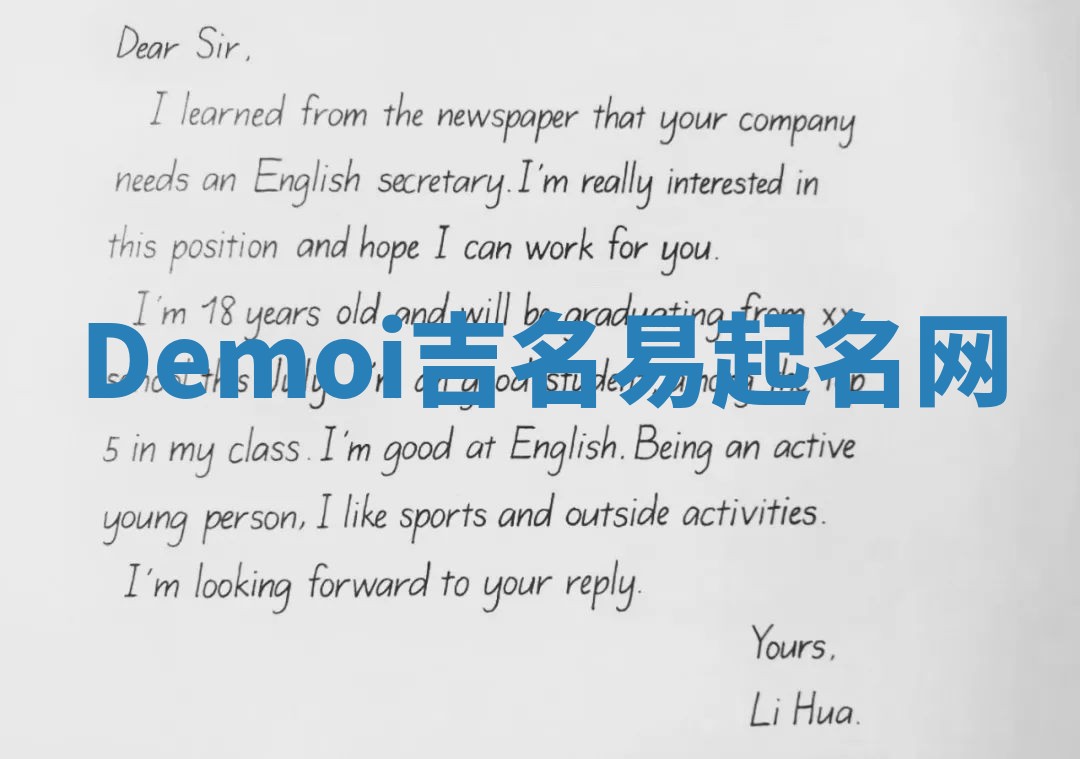 Dear Sir,
I learned from the newspaper that your company
needs an English secretary. I'm really interested in
this position and hope I can work for you.
I'm 18 years old and will be graduating from xx
Demoi吉名易起名网
school this July. I'm a good student among the top
5 in my class. I'm good at English. Being an active
young person, I like sports and outside activities.
I'm looking forward to your reply.
Yours,
Li Hua.